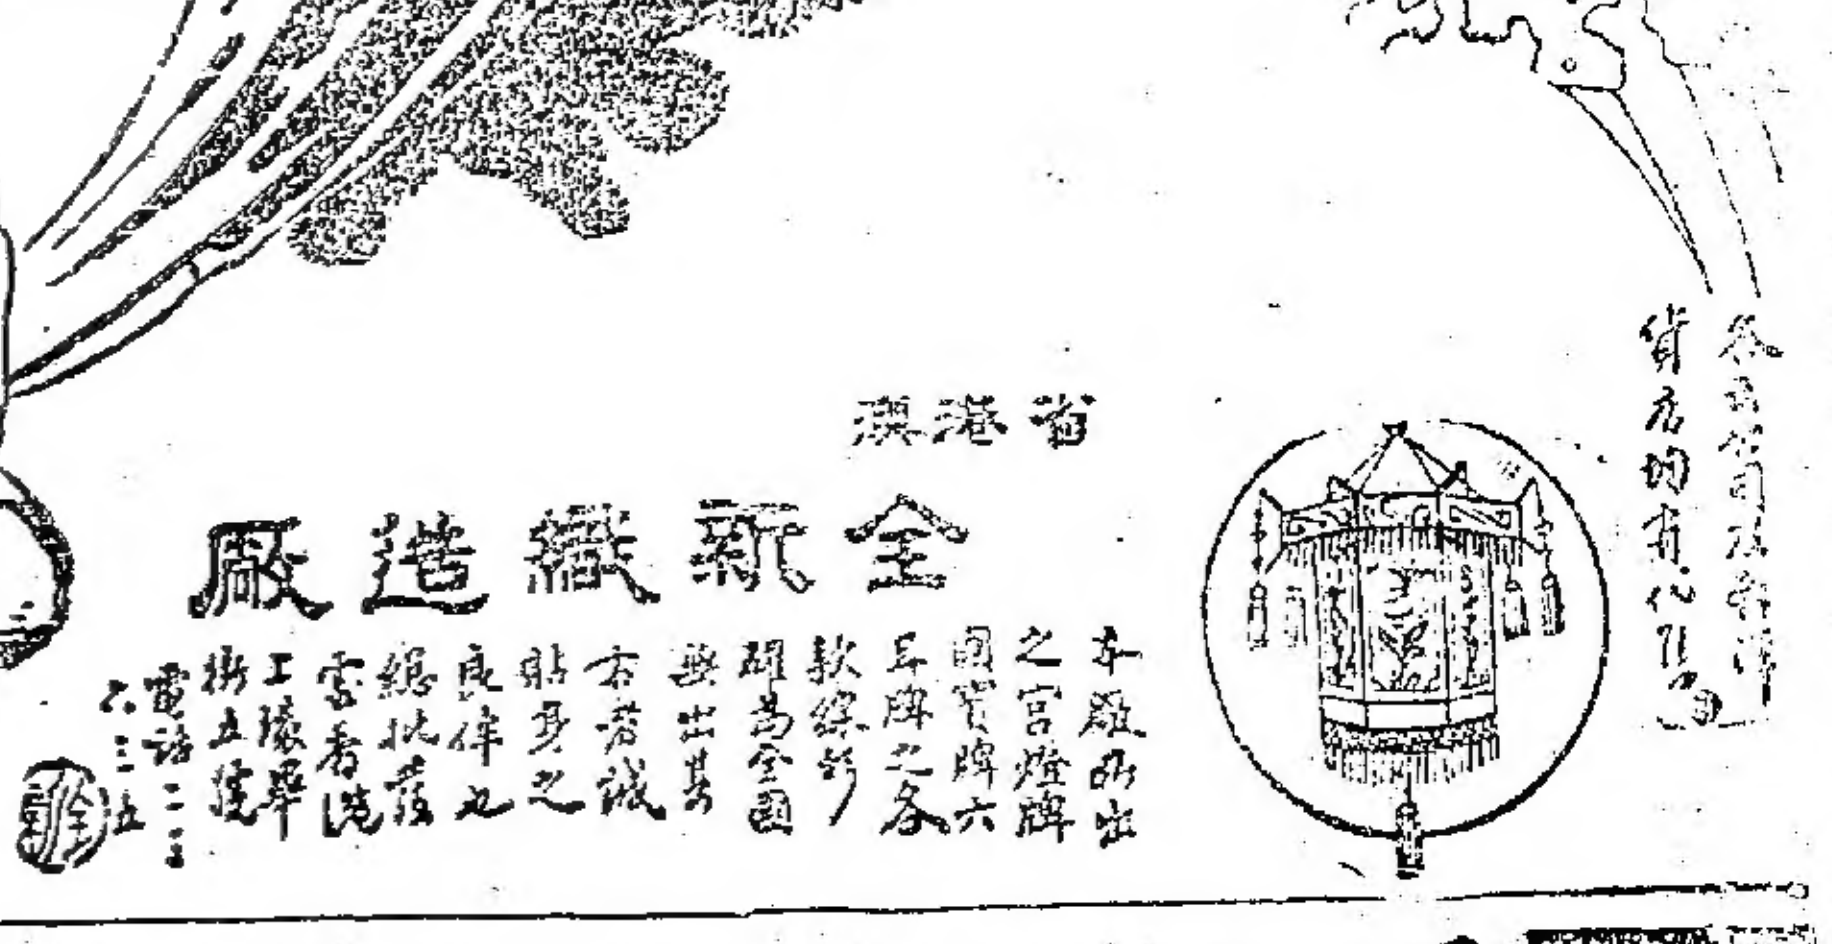 各大公司及洋
貨店均有代售
省港澳
全新織造廠
本廠所出
之宮燈牌
國寶牌六
耳牌之各
款線衫
堪為全國
無出其
右者誠
貼身之
良伴也
總批發
處香港
街五號
電話二二三
六三五
全新